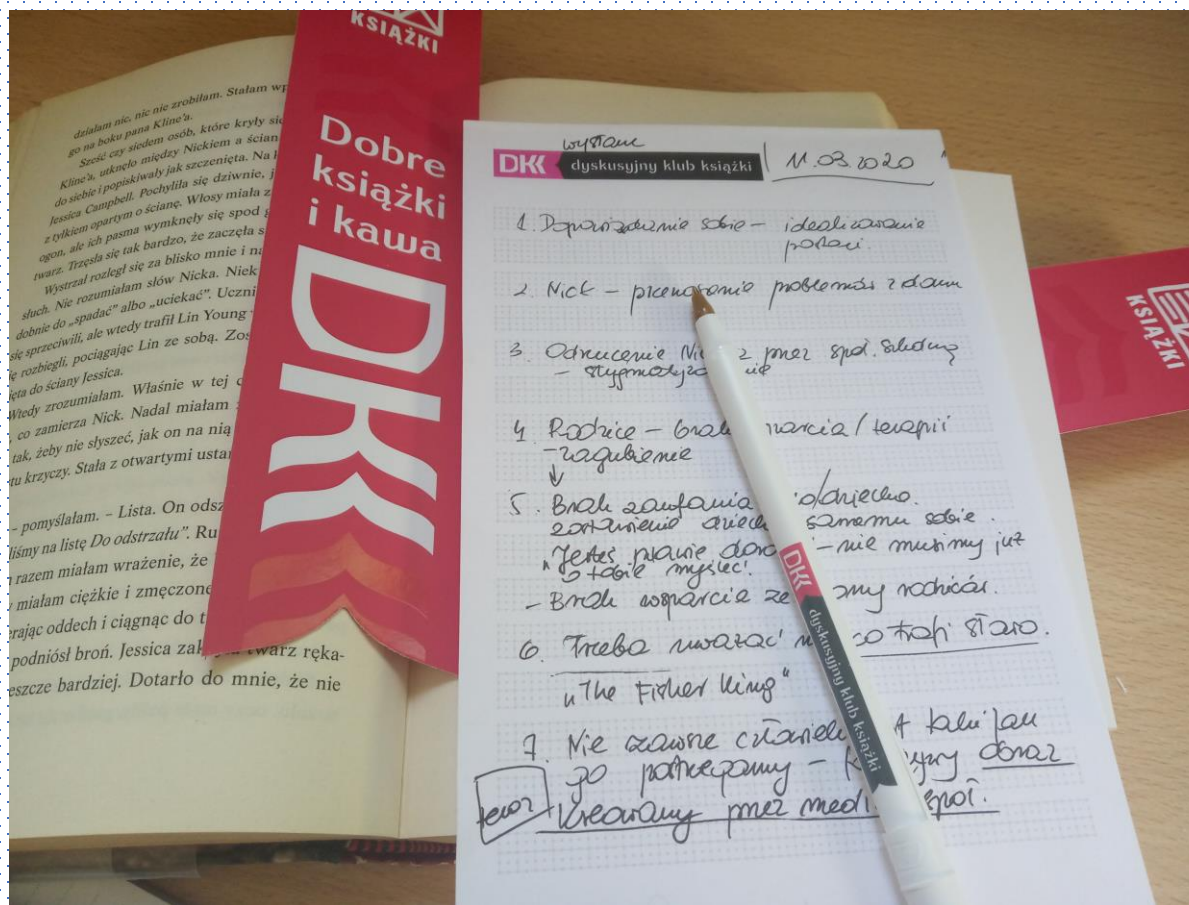 działam nic, nic nie zrobiłam. Stałam
go na boku pana Kline'a.
Sześć czy siedem osób, które kryły
Kline'a, utknęło między Nickiem a
do siebie i popiskiwały jak szczenięta. Na
Jessica Campbell. Pochyliła się dziwnie,
z tyłkiem opartym o ścianę. Włosy miała
ogon, ale ich pasma wymknęły się spod
twarz. Trzęsła się tak bardzo, że zaczęła
Wystrzał rozległ się za blisko mnie i
słuch. Nie rozumiałam słów Nicka.
dobnie do „spadać” albo „uciekać”.
się sprzeciwili, ale wtedy trafił Lin Young
ę rozbiegli, pociągając Lin ze sobą.
ęta do ściany Jessica.
Wtedy zrozumiałam. Właśnie w tej
, co zamierza Nick. Nadal miałam
tak, żeby nie słyszeć, jak on na nią
tu krzyczy. Stała z otwartymi
– pomyślałam. – Lista. On
liśmy na listę Do odstrzału”.
razem miałam wrażenie, że
miałam ciężkie i zmęczone
erając oddech i ciągnąc do
podniósł broń. Jessica twarz ręka-
eszcze bardziej. Dotarło do mnie, że nie
KSIĄŻKI
Dobre
książki
i kawa
DKK
DKK dyskusyjny klub książki 11.03.2020
1. Dopowiadanie sobie – idealizowanie
postaci.
2. Nick – przenoszenie problemów z domu
3. Odrzucenie przez społ. szkolną
– stygmatyzo
4. Rodzice – brak wsparcia / terapii
– zagubienie
5. Brak zaufania do dziecka.
zostawienie samemu sobie.
„Jesteś prawie – nie musimy już
o tobie myśleć!
– Brak wsparcia ze rodziców.
6. Trzeba uważać co trafi słowo.
„The Fisher King”
7. Nie zawsze człowiek taki jak
go postrzegamy – obraz
kreowany przez społ.
teraz
DKK dyskusyjny klub książki
KSIĄŻKI